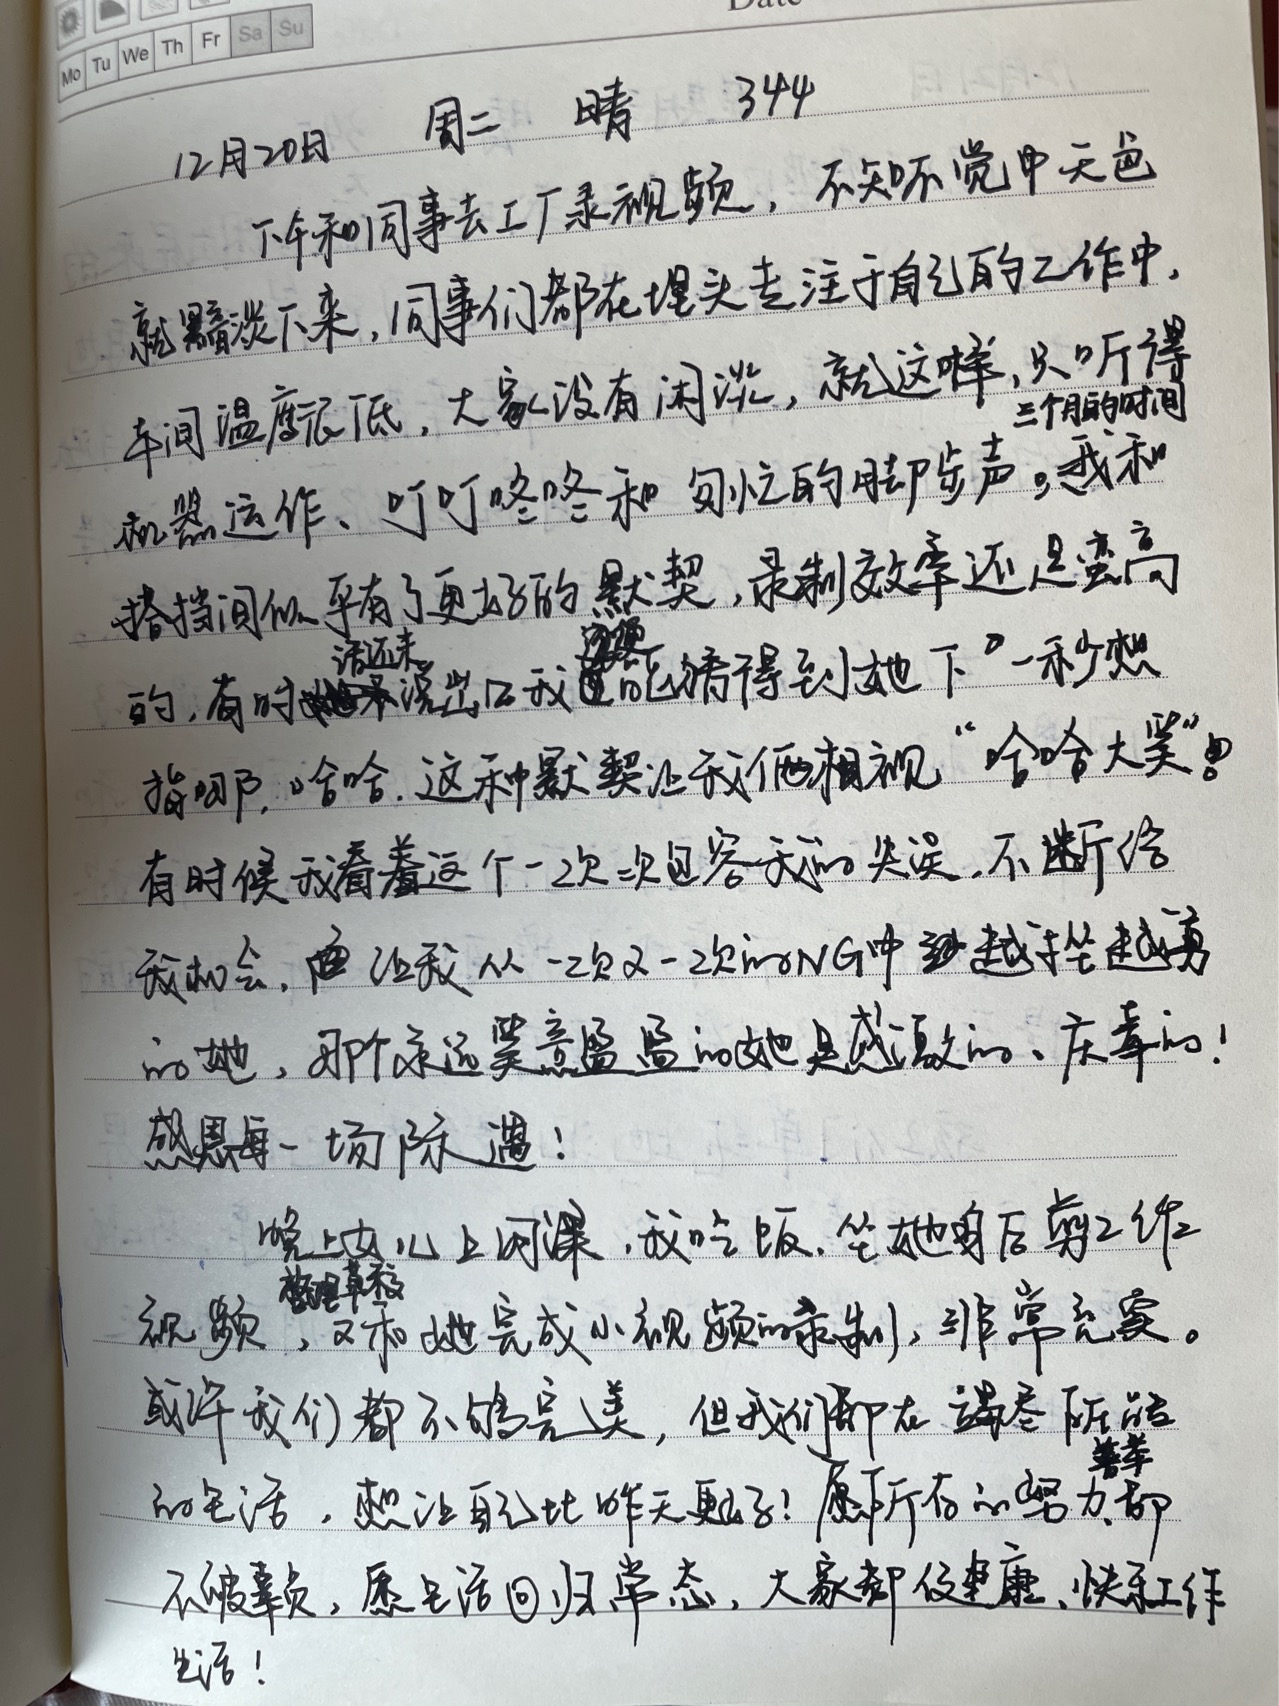 Date
Mo Tu We Th Fr Sa Su
12月20日 周二 晴 344
下午和同事去工厂录视频，不知不觉中天色
就黯淡下来，同事们都在埋头专注于自己的工作中，
车间温度很低，大家没有闲谈，就这样，只听得
三个月的时间
机器运作、叮叮咚咚和匆忙的脚步声。我和
搭挡间似乎有了更好的默契，录制效率还是蛮高
话还未
的，有时没出口我能猜得到她下一秒想
指哪，哈哈，这种默契让我们俩相视“哈哈大笑”！
有时候我看着这个一次次包容我的失误，不断给
我机会，让我从一次又一次的NG中越挫越勇
的她，那个永远笑意盈盈的她是感激的、庆幸的！
感恩每一场际遇！
晚上女儿上网课，我吃饭，坐她身后剪工作
整理草校
视频，又和她完成小视频的录制，非常充实。
或许我们都不够完美，但我们都在竭尽所能
善举
的生活，想让自己比昨天更好！愿所有的努力、都
不被辜负，愿生活回归常态，大家都健康、快乐工作
生活！